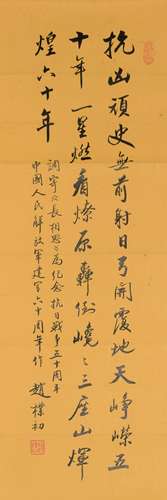 抗凶頑史無前射日弓開覆地天崢嶸五
十年一星燃看燎原轟倒嶢〻三座山煇
煌六十年
調寄〈長相思〉為紀念抗日戰爭五十周年
中國人民解放軍建軍六十周年作 趙樸初